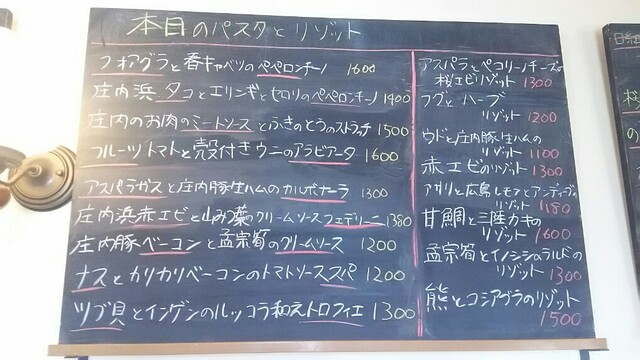 本日のパスタとリゾット
フォアグラと春キャベツのペペロンチーノ 1600
庄内浜タコとエリンギとセロリのペペロンチーノ 1400
庄内のお肉のミートソースとふきのとうのストラッチ 1500
フルーツトマトと殻付きウニのアラビアータ 1600
アスパラガスと庄内豚生ハムのカルボナーラ 1300
庄内浜赤エビと山み葉のクリームソースフェデリーニ 1380
庄内豚ベーコンと孟宗筍のクリームソース 1200
ナスとカリカリベーコンのトマトソーススパ 1200
ツブ貝とインゲンのルッコラ和えトロフィエ 1300
アスパラとペコリーノチーズと
桜エビリゾット 1300
フグとハーブ
リゾット 1200
ウドと庄内豚生ハムの
リゾット 1100
赤エビのリゾット 1300
アサリと広島レモンとアンディーブの
リゾット 1180
甘鯛と三陸カキの
リゾット 1600
孟宗筍とイノシシのラルドの
リゾット 1300
熊とコシアブラのリゾット
1500